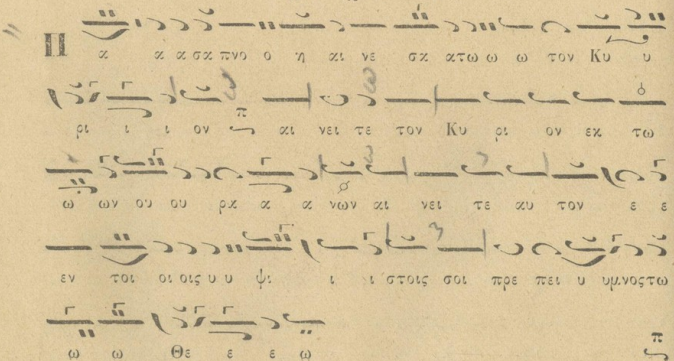 Π α α α σα πνο ο η αι νε σα ατω ω ω τον Κυ υ
ρι ι ι ον π αι νει τε τον Κυ ρι ον εκ τω
ω ων ου ου ρα α α νων αι νει τε αυ τον ε ε
εν τοι οι οις υ υ ψι ι ι στοις σοι πρε πει υ υμνος τω
ω ω Θε ε ε ω π